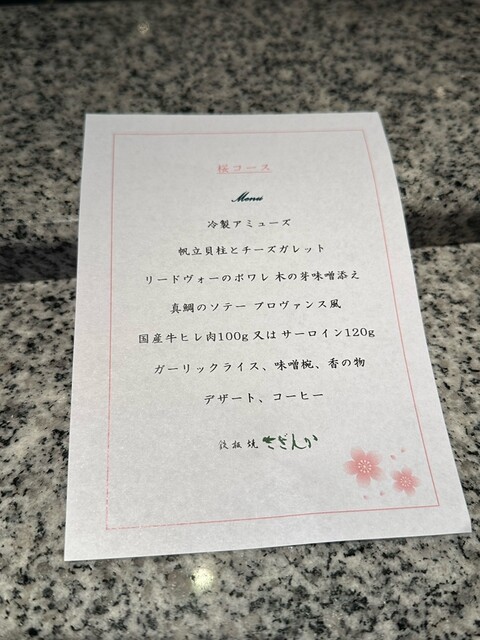 桜コース
Menu
冷製アミューズ
帆立貝柱とチーズガレット
リードヴォーのポワレ 木の芽味噌添え
真鯛のソテー プロヴァンス風
国産牛ヒレ肉100g 又は サーロイン120g
ガーリックライス、味噌椀、香の物
デザート、コーヒー
鉄板焼 さざんか